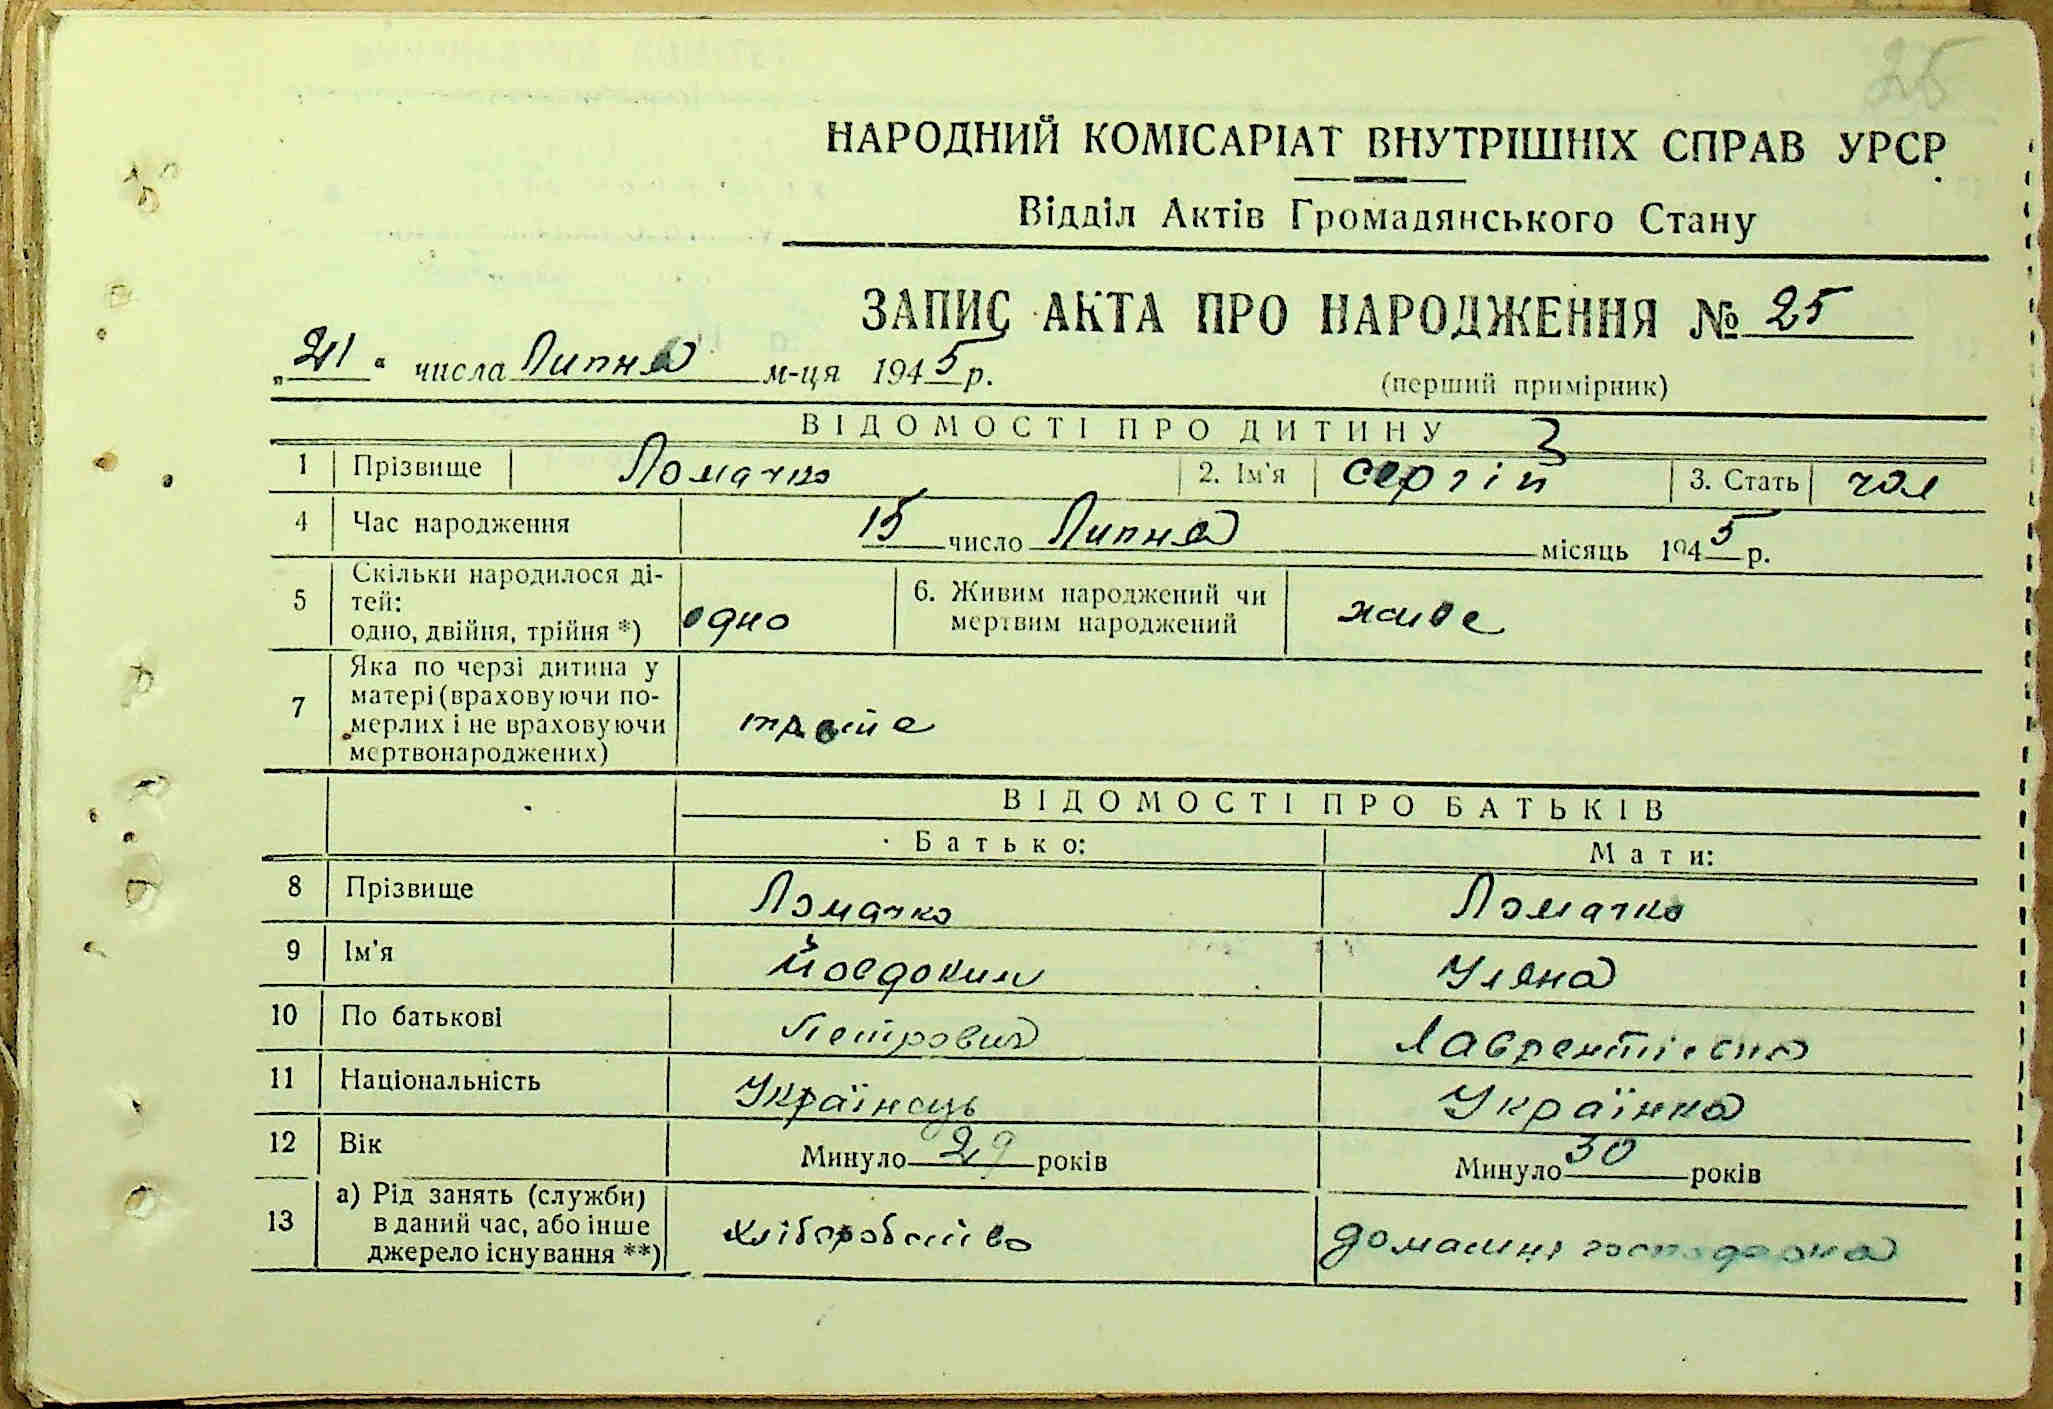 25
НАРОДНИЙ КОМІСАРІАТ ВНУТРІШНІХ СПРАВ УРСР
Відділ Актів Громадянського Стану
ЗАПИС АКТА ПРО НАРОДЖЕННЯ № 25
„21“ числа Липня м-ця 1945 р.
(перший примірник)
ВІДОМОСТІ ПРО ДИТИНУ
1 Прізвище Ломачко 2. Ім'я Сергій 3. Стать чол
4 Час народження 15 число Липня місяць 1945 р.
5 Скільки народилося ді-
тей:
одно, двійня, трійня *) одно 6. Живим народжений чи
мертвим народжений живе
7 Яка по черзі дитина у
матері (враховуючи по-
мерлих і не враховуючи
мертвонароджених)
ВІДОМОСТІ ПРО БАТЬКІВ
Батько: Мати:
8 Прізвище Ломачко Ломачко
9 Ім'я Йовдоким Уляна
10 По батькові Петрович Лаврентієвна
11 Національність Українець Українка
12 Вік Минуло 29 років Минуло 30 років
13 а) Рід занять (служби)
в даний час, або інше
джерело існування **) хліборобство домашня господарка